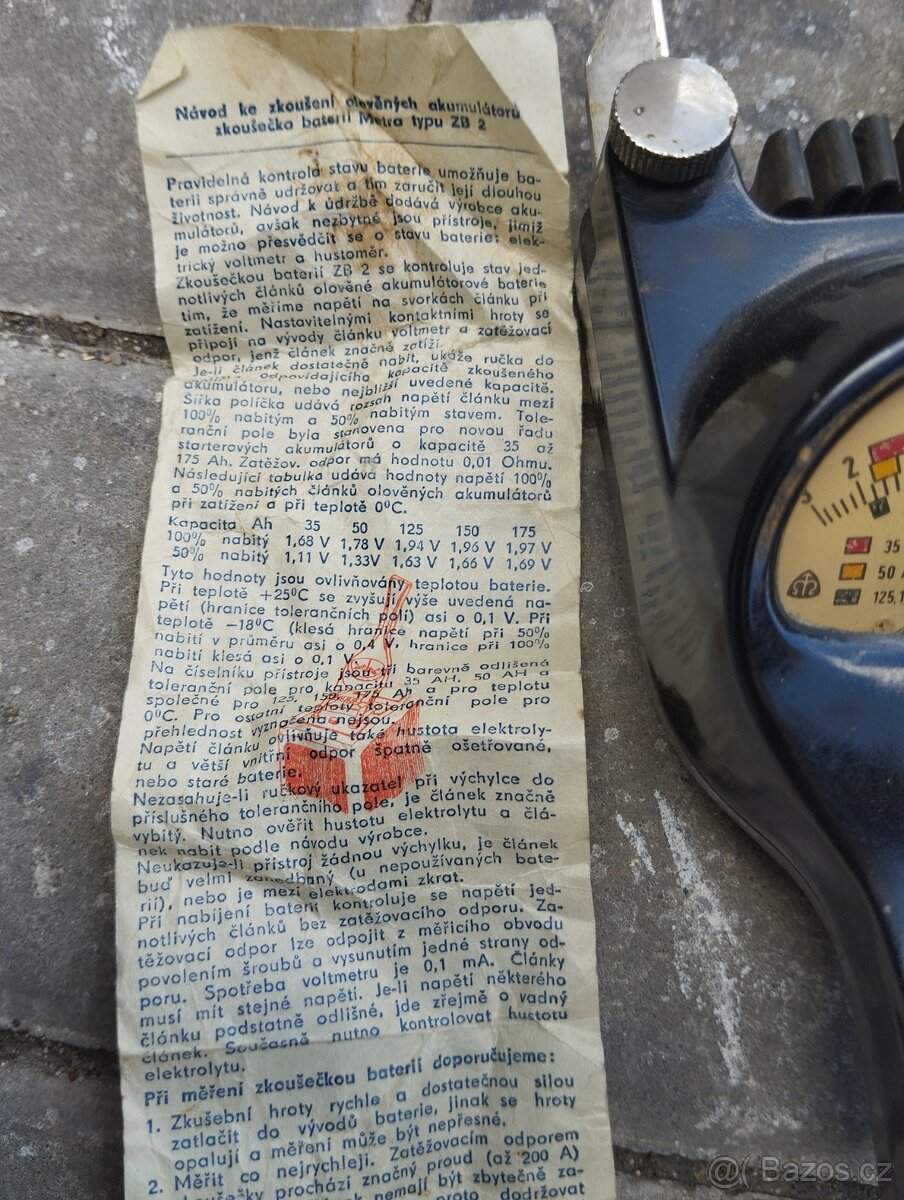 Návod ke zkoušení olověných akumulátorů
zkoušečka baterií Metra typu ZB 2
Pravidelná kontrola stavu baterie umožňuje ba-
terii správně udržovat a tím zaručit její dlouhou
životnost. Návod k údržbě dodává výrobce aku-
mulátorů, avšak nezbytné jsou přístroje, jimiž
je možno přesvědčit se o stavu baterie: elek-
trický voltmetr a hustoměr.
Zkoušečkou baterií ZB 2 se kontroluje stav jed-
notlivých článků olověné akumulátorové baterie
tím, že měříme napětí na svorkách článku při
zatížení. Nastavitelnými kontaktními hroty se
připojí na vývody článku voltmetr a zatěžovací
odpor, jenž článek značně zatíží.
Je-li článek dostatečně nabit, ukáže ručka do
odpovídajícího kapacitě zkoušeného
akumulátoru, nebo nejbližší uvedené kapacitě.
Šířka políčka udává rozsah napětí článku mezi
100% nabitým a 50% nabitým stavem. Tole-
ranční pole byla stanovena pro novou řadu
starterových akumulátorů o kapacitě 35 až
175 Ah. Zatěžov. odpor má hodnotu 0,01 Ohmu.
Následující tabulka udává hodnoty napětí 100%
a 50% nabitých článků olověných akumulátorů
při zatížení a při teplotě 0°C.
Kapacita Ah 35 50 125 150 175
100% nabitý 1,68 V 1,78 V 1,94 V 1,96 V 1,97 V
50% nabitý 1,11 V 1,33V 1,63 V 1,66 V 1,69 V
Tyto hodnoty jsou ovlivňovány teplotou baterie.
Při teplotě +25°C se zvyšují výše uvedená na-
pětí (hranice tolerančních polí) asi o 0,1 V. Při
teplotě —18°C (klesá hranice napětí při 50%
nabití v průměru asi o 0,4 V, hranice při 100%
nabití klesá asi o 0,1 V.
Na číselníku přístroje jsou tři barevně odlišená
toleranční pole pro kapacitu 35 AH, 50 AH a
společné pro 125, 150, 175 Ah a pro teplotu
0°C. Pro ostatní teploty toleranční pole pro
přehlednost vyznačena nejsou.
Napětí článku ovlivňuje také hustota elektroly-
tu a větší vnitřní odpor špatně ošetřované,
nebo staré baterie.
Nezasahuje-li ručkový ukazatel při výchylce do
příslušného tolerančního pole, je článek značně
vybitý. Nutno ověřit hustotu elektrolytu a člá-
nek nabít podle návodu výrobce.
Neukazuje-li přístroj žádnou výchylku, je článek
buď velmi zanedbaný (u nepoužívaných bate-
rií), nebo je mezi elektrodami zkrat.
Při nabíjení baterií kontroluje se napětí jed-
notlivých článků bez zatěžovacího odporu. Za-
těžovací odpor lze odpojit z měřicího obvodu
povolením šroubů a vysunutím jedné strany od-
poru. Spotřeba voltmetru je 0,1 mA. Články
musí mít stejné napětí. Je-li napětí některého
článku podstatně odlišné, jde zřejmě o vadný
článek. Současně nutno kontrolovat hustotu
elektrolytu.
Při měření zkoušečkou baterií doporučujeme:
1. Zkušební hroty rychle a dostatečnou silou
zatlačit do vývodů baterie, jinak se hroty
opalují a měření může být nepřesné.
2. Měřit co nejrychleji. Zatěžovacím odporem
zkoušečky prochází značný proud (až 200 A)
nemají být zbytečně za-
proto dodržovat
3 2
35
50 A
125,1
@ Bazos.cz